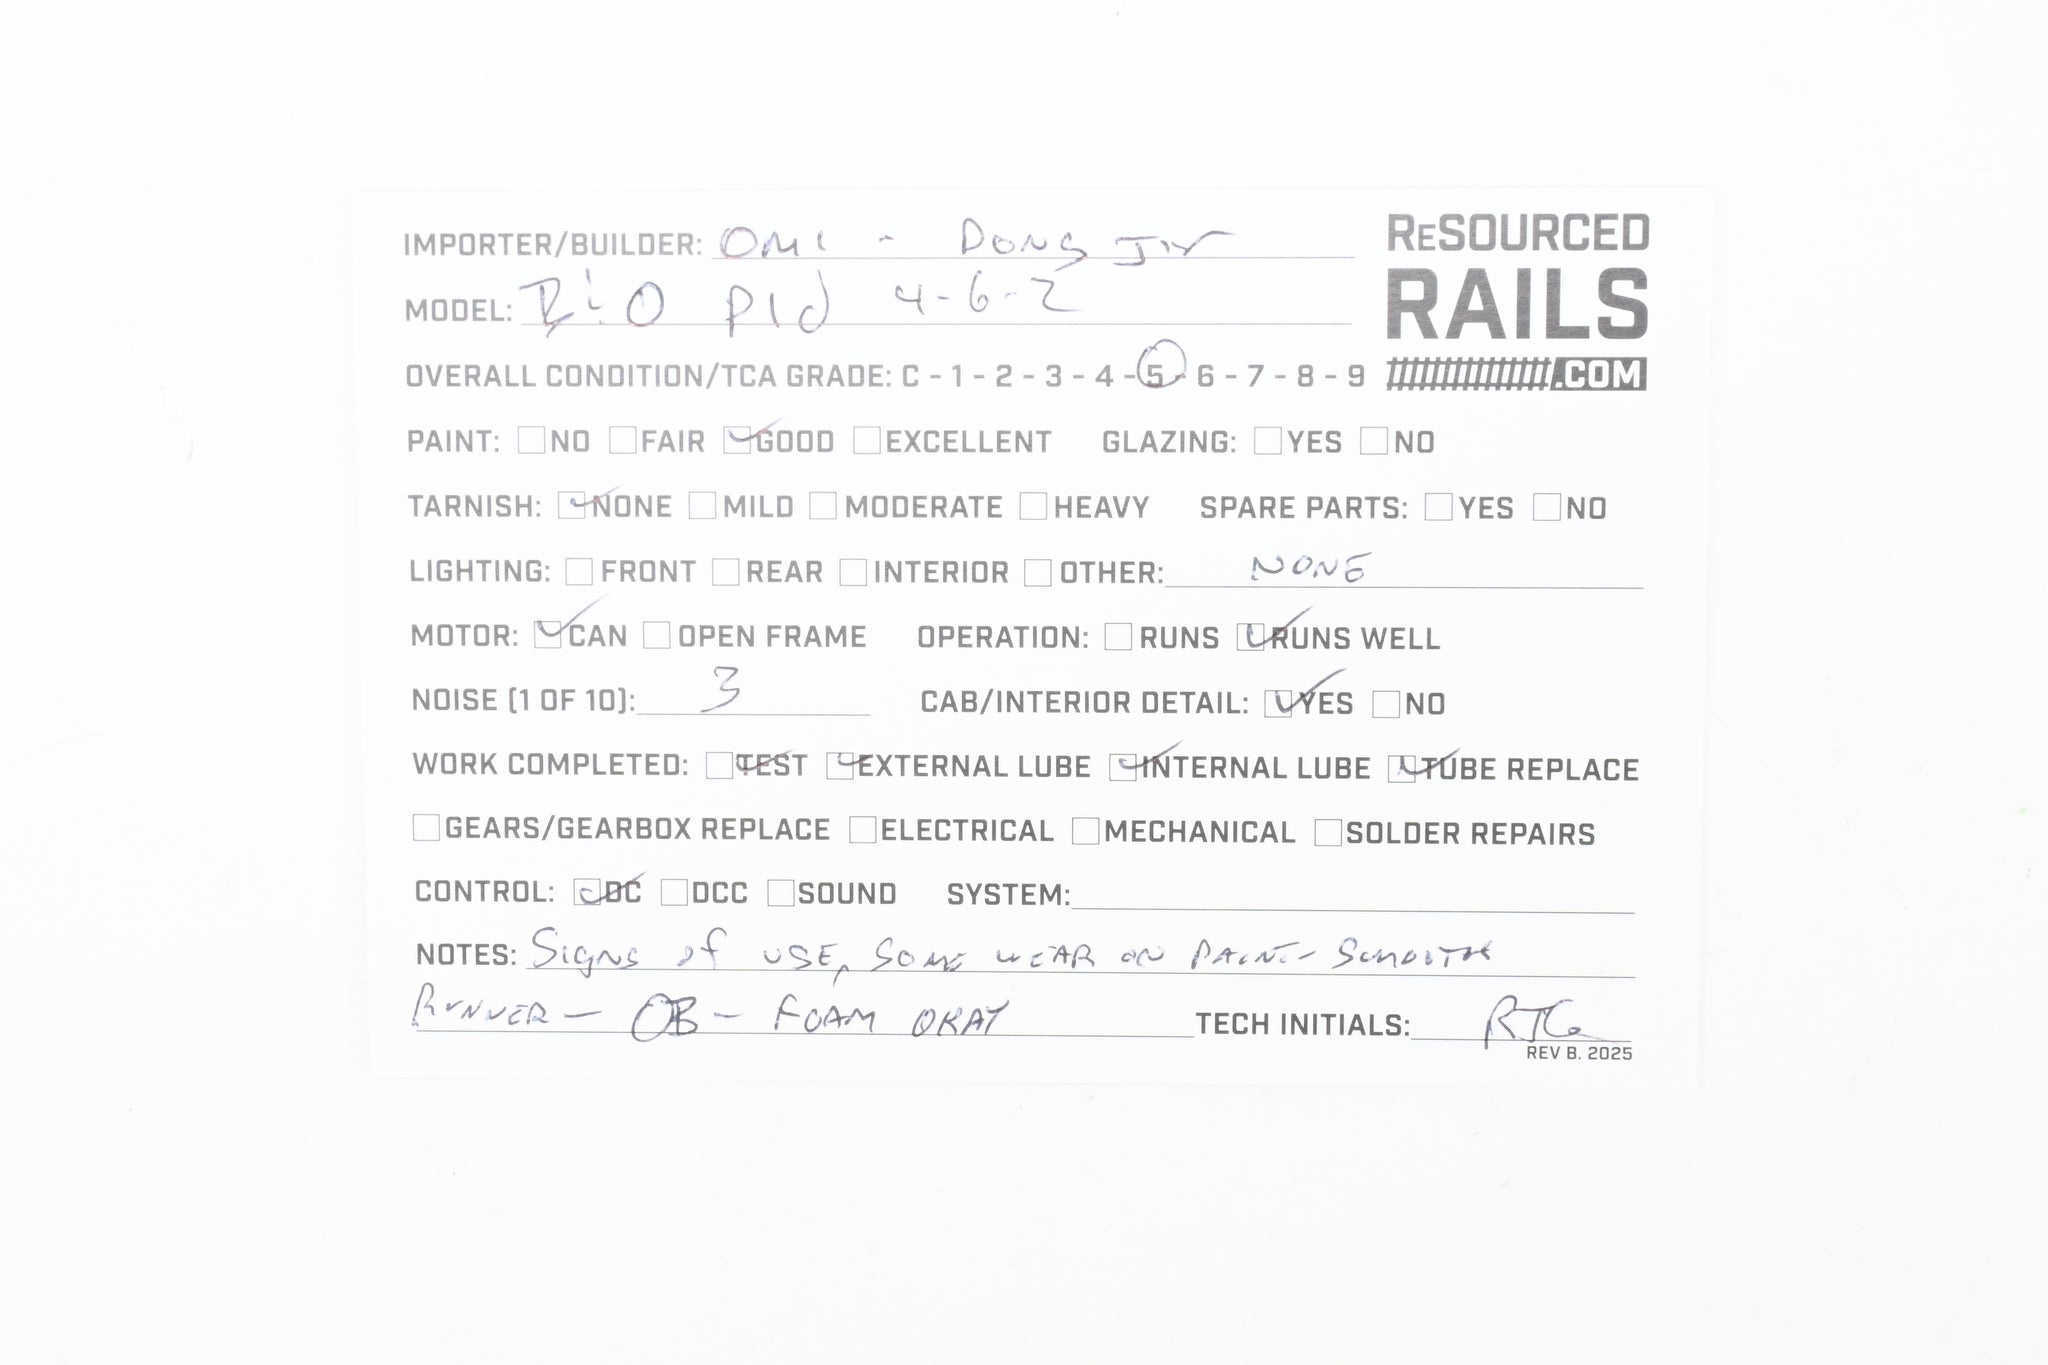 IMPORTER/BUILDER: OMI - DONG JIN
RESOURCED
RAILS
.COM
MODEL: B&O P1d 4-6-2
OVERALL CONDITION/TCA GRADE: C - 1 - 2 - 3 - 4 - 5 - 6 - 7 - 8 - 9
PAINT: NO FAIR GOOD EXCELLENT GLAZING: YES NO
TARNISH: NONE MILD MODERATE HEAVY SPARE PARTS: YES NO
LIGHTING: FRONT REAR INTERIOR OTHER: NONE
MOTOR: CAN OPEN FRAME OPERATION: RUNS RUNS WELL
NOISE (1 OF 10): 3 CAB/INTERIOR DETAIL: YES NO
WORK COMPLETED: TEST EXTERNAL LUBE INTERNAL LUBE TUBE REPLACE
GEARS/GEARBOX REPLACE ELECTRICAL MECHANICAL SOLDER REPAIRS
CONTROL: DC DCC SOUND SYSTEM:
NOTES: SIGNS of USE, SOME WEAR ON PAINT - SMOOTH
RUNNER - OB - FOAM OKAY TECH INITIALS:
REV B. 2025